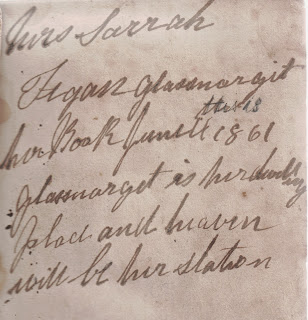 Mrs Sarrah
Fegan Glassnargit
her Book June the 18 1861
glassnarget is her dwelling
place and heaven
will be her station